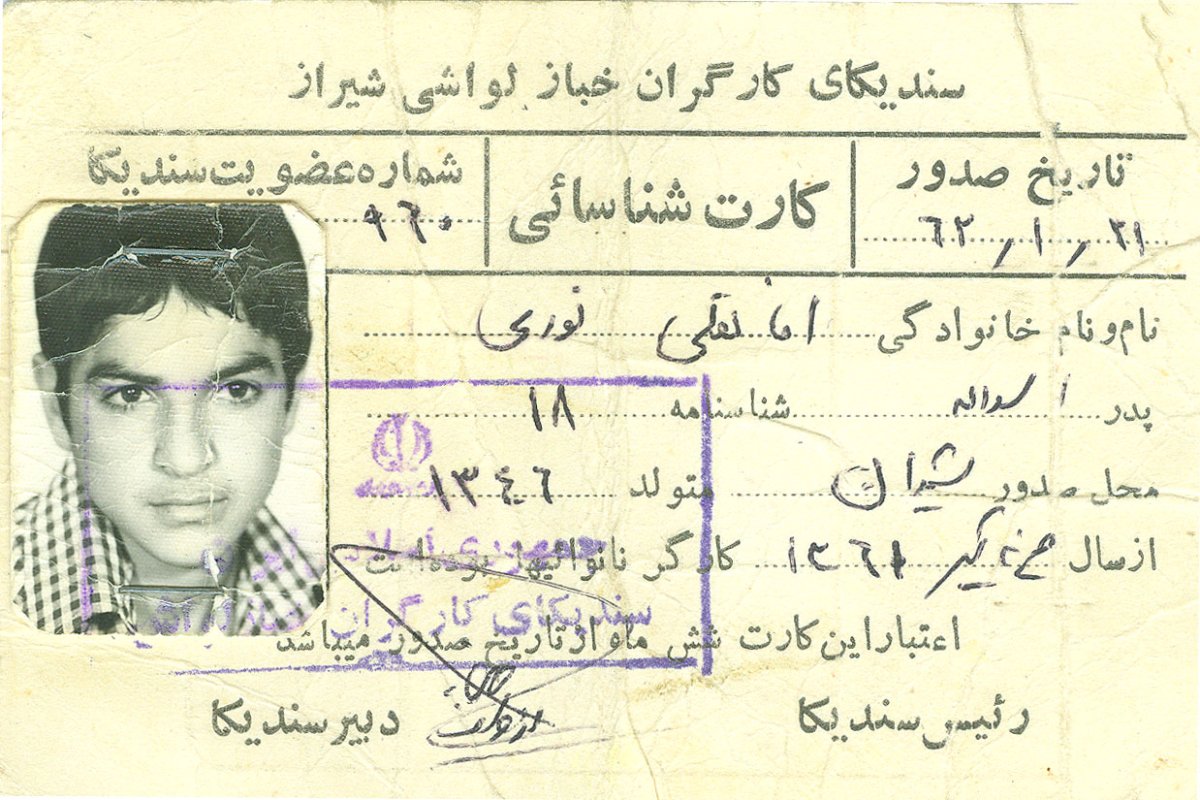 سندیکای کارگران خباز لواشی شیراز
تاریخ صدور
۲۱ / ۱ / ۶۲
کارت شناسائی
شماره عضویت سندیکا
۹۶۰
نام و نام خانوادگی اماقلی نوری
پدر شناسنامه ۱۸
محل صدور متولد ۱۳۴۶
از سال ۱۳۶۱ کارگر نانوائیها بوده است
اعتبار این کارت شش ماه از تاریخ صدور میباشد
رئیس سندیکا دبیر سندیکا
جمهوری اسلامی ایران
سندیکای کارگران